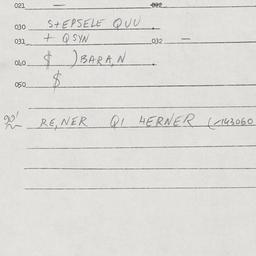 021 — 022
030 STEPSELE QUU .
031 + QSYN 032 —
040 $ ) BARA,N .
050 $
RE,NER QI HERNER (143060